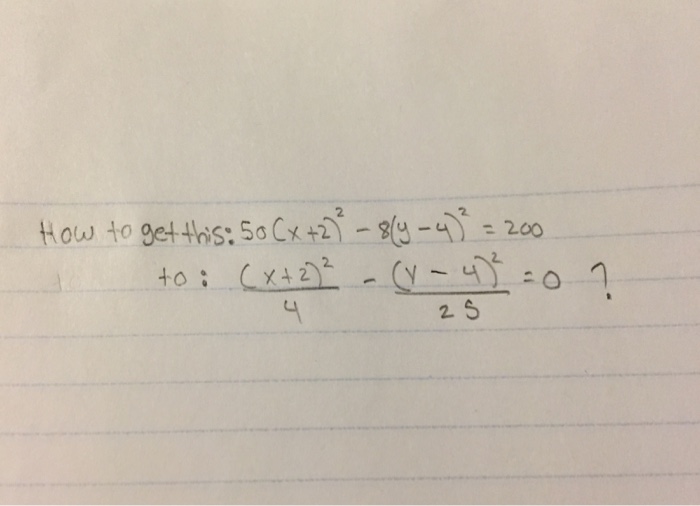 How to get this: 50(x+2)² - 8(y-4)² = 200
to: (x+2)²/4 - (y-4)²/25 = 0 ?